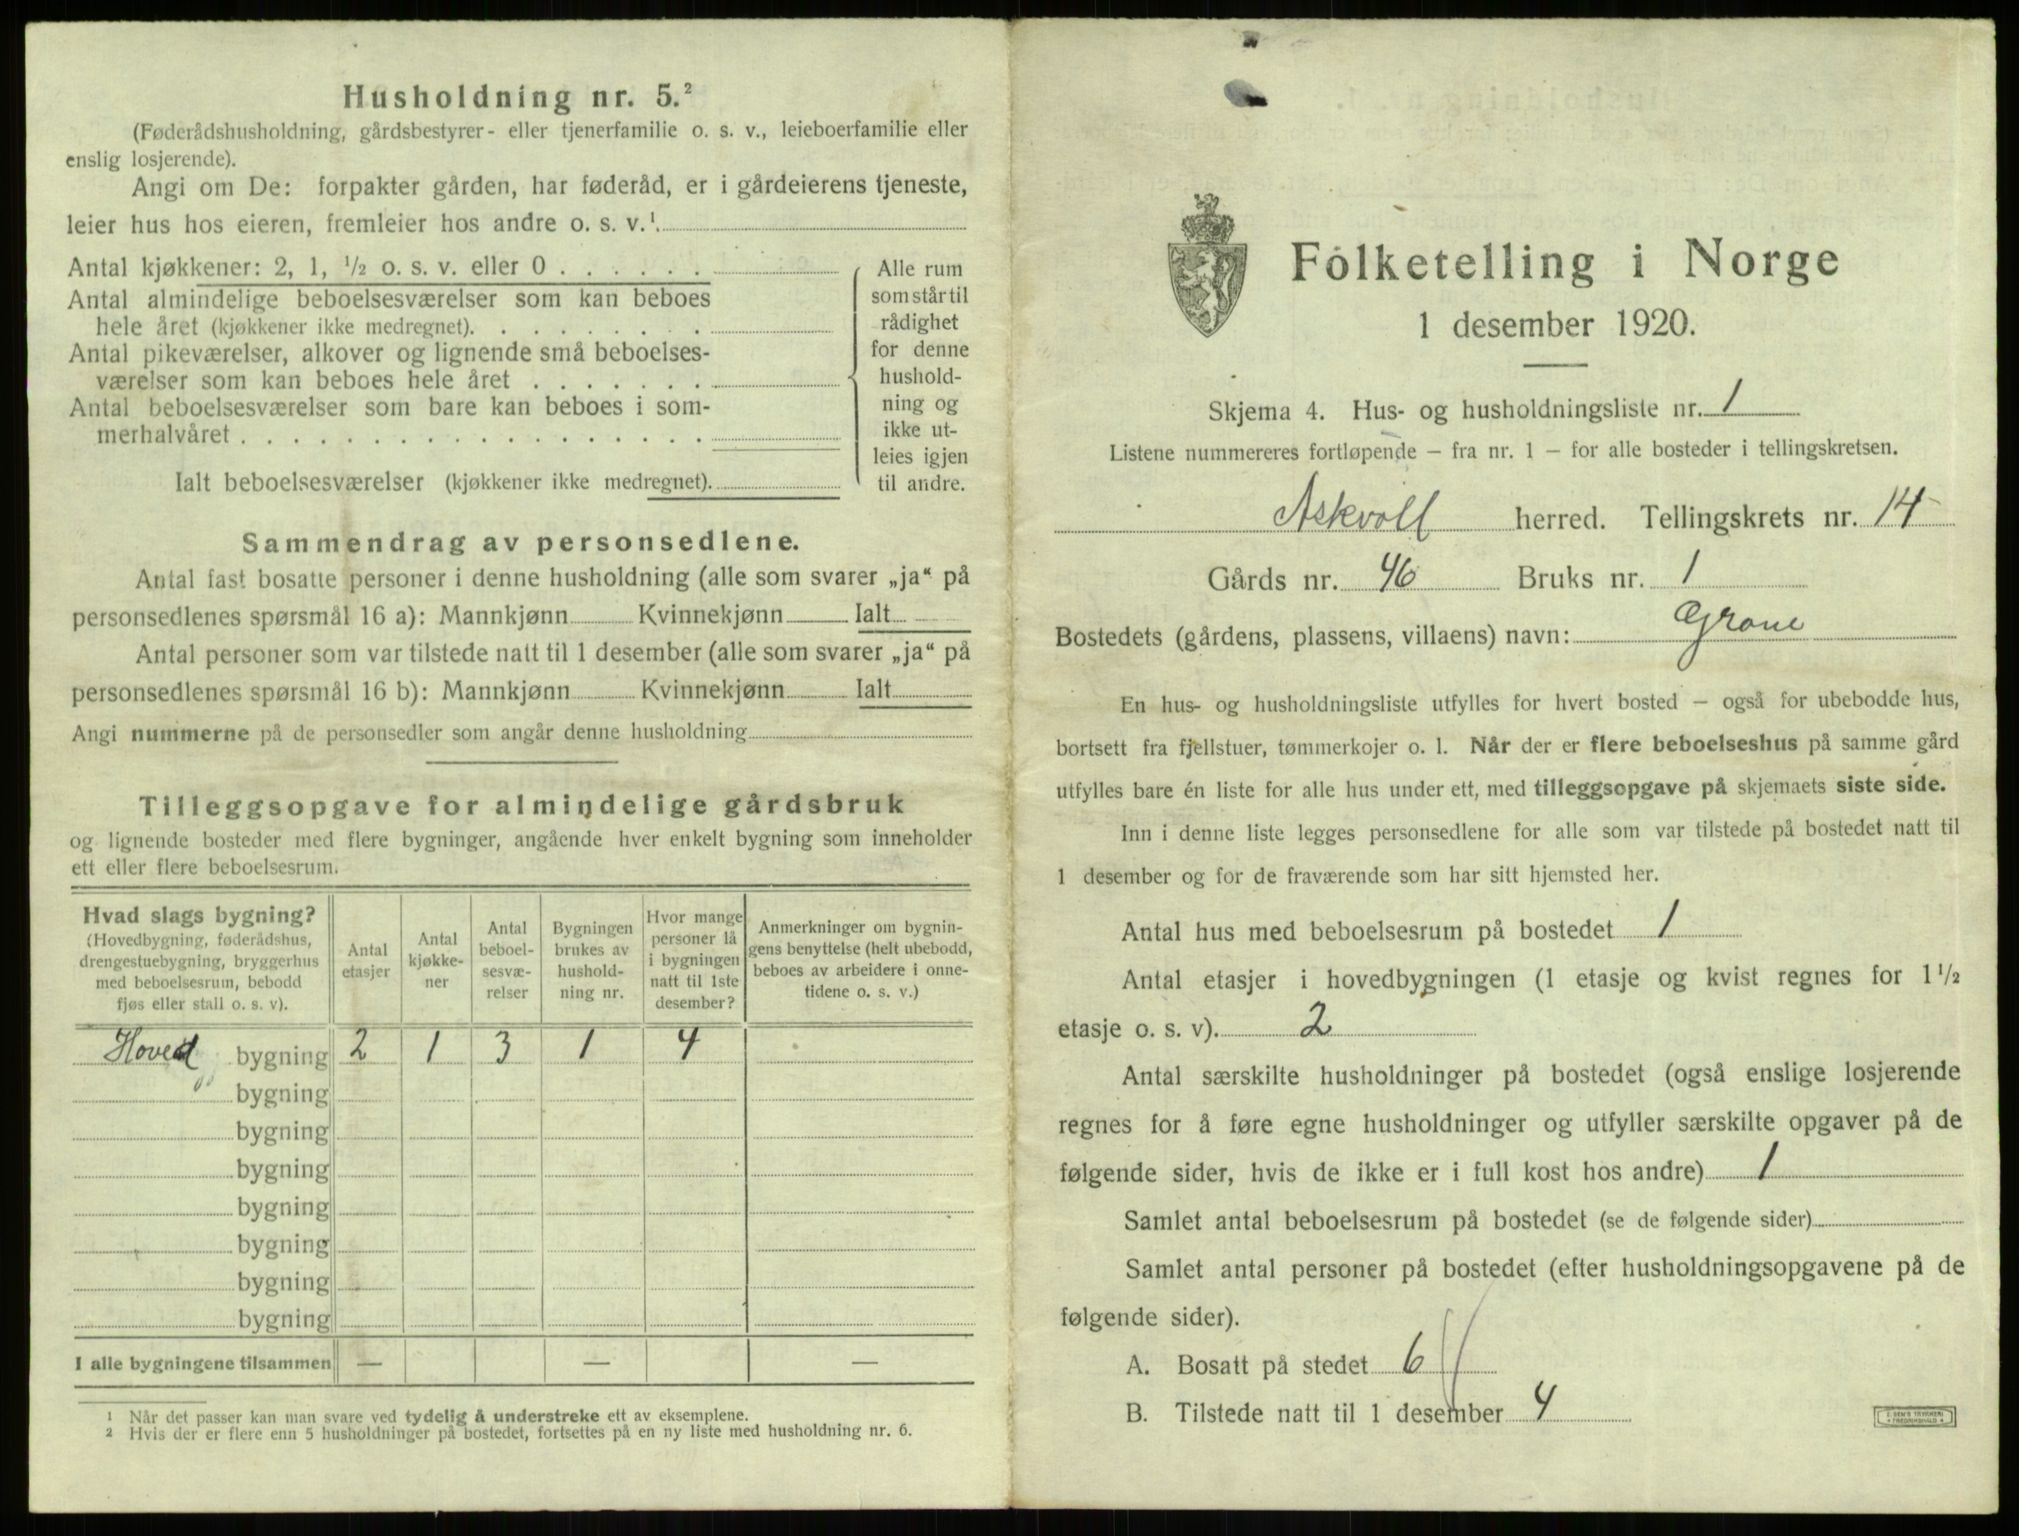 Husholdning nr. 5.²
(Føderådshusholdning, gårdsbestyrer- eller tjenerfamilie o. s. v., leieboerfamilie eller
enslig losjerende).
Angi om De: forpakter gården, har føderåd, er i gårdeierens tjeneste,
leier hus hos eieren, fremleier hos andre o. s. v.¹.
Antal kjøkkener: 2, 1, ½ o. s. v. eller 0 . . . . . .
Antal almindelige beboelsesværelser som kan beboes
hele året (kjøkkener ikke medregnet). . . . . . . . .
Antal pikeværelser, alkover og lignende små beboelses-
værelser som kan beboes hele året . . . . . . .
Antal beboelsesværelser som bare kan beboes i som-
merhalvåret . . . . . . . . . . . . . . . . . .
Ialt beboelsesværelser (kjøkkener ikke medregnet).
Alle rum
som står til
rådighet
for denne
hushold-
ning og
ikke ut-
leies igjen
til andre.
Sammendrag av personsedlene.
Antal fast bosatte personer i denne husholdning (alle som svarer „ja“ på
personsedlenes spørsmål 16 a): Mannkjønn Kvinnekjønn Ialt
Antal personer som var tilstede natt til 1 desember (alle som svarer „ja“ på
personsedlenes spørsmål 16 b): Mannkjønn Kvinnekjønn Ialt
Angi nummerne på de personsedler som angår denne husholdning
Tilleggsopgave for almindelige gårdsbruk
og lignende bosteder med flere bygninger, angående hver enkelt bygning som inneholder
ett eller flere beboelsesrum.
Hvad slags bygning?
(Hovedbygning, føderådshus,
drengestuebygning, bryggerhus
med beboelsesrum, bebodd
fjøs eller stall o. s. v).
Antal
etasjer
Antal
kjøkke-
ner
Antal
beboel-
sesvæ-
relser
Bygningen
brukes av
hushold-
ning nr.
Hvor mange
personer lå
i bygningen
natt til 1ste
desember?
Anmerkninger om bygnin-
gens benyttelse (helt ubebodd,
beboes av arbeidere i onne-
tidene o. s. v.)
Hoved bygning 2 1 3 1 4
bygning
bygning
bygning
bygning
bygning
bygning
bygning
I alle bygningene tilsammen — — —
¹ Når det passer kan man svare ved tydelig å understreke ett av eksemplene.
² Hvis der er flere enn 5 husholdninger på bostedet, fortsettes på en ny liste med husholdning nr. 6.
Folketelling i Norge
1 desember 1920.
Skjema 4. Hus- og husholdningsliste nr. 1
Listene nummereres fortløpende — fra nr. 1 — for alle bosteder i tellingskretsen.
Askvoll herred. Tellingskrets nr. 14
Gårds nr. 46 Bruks nr. 1
Bostedets (gårdens, plassens, villaens) navn: Grove
En hus- og husholdningsliste utfylles for hvert bosted — også for ubebodde hus,
bortsett fra fjellstuer, tømmerkojer o. l. Når der er flere beboelseshus på samme gård
utfylles bare én liste for alle hus under ett, med tilleggsopgave på skjemaets siste side.
Inn i denne liste legges personsedlene for alle som var tilstede på bostedet natt til
1 desember og for de fraværende som har sitt hjemsted her.
Antal hus med beboelsesrum på bostedet 1
Antal etasjer i hovedbygningen (1 etasje og kvist regnes for 1½
etasje o. s. v). 2
Antal særskilte husholdninger på bostedet (også enslige losjerende
regnes for å føre egne husholdninger og utfyller særskilte opgaver på de
følgende sider, hvis de ikke er i full kost hos andre) 1
Samlet antal beboelsesrum på bostedet (se de følgende sider)
Samlet antal personer på bostedet (efter husholdningsopgavene på de
følgende sider).
A. Bosatt på stedet 6
B. Tilstede natt til 1 desember 4